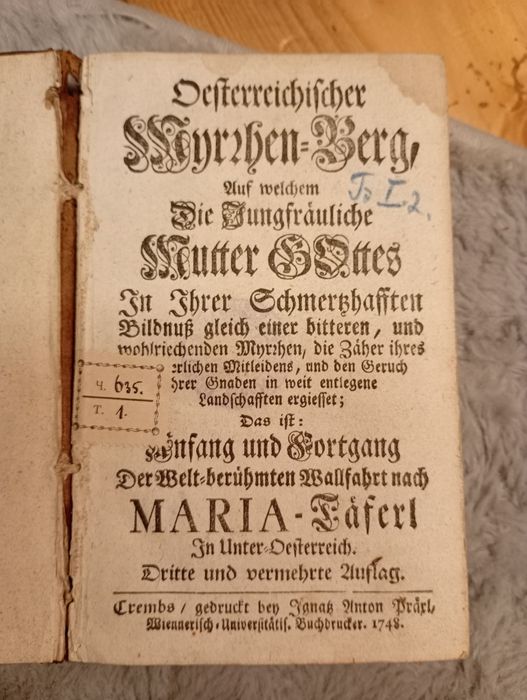 Oesterreichischer
Myrrhen-Berg,
Auf welchem
Die Jungfräuliche
Mutter GOttes
In Ihrer Schmertzhafften
Bildnuß gleich einer bitteren, und
wohlriechenden Myrrhen, die Zäher ihres
erlichen Mitleidens, und den Geruch
hrer Gnaden in weit entlegene
Landschafften ergiesset;
Das ist:
Anfang und Fortgang
Der Welt-berühmten Wallfahrt nach
MARIA-Täferl
In Unter-Oesterreich.
Dritte und vermehrte Auflag.
Crembs / gedruckt bey Ignatz Anton Präxl,
Wiennerisch-Universitäts. Buchdrucker. 1748.
Ч. 635.
Т. 1.